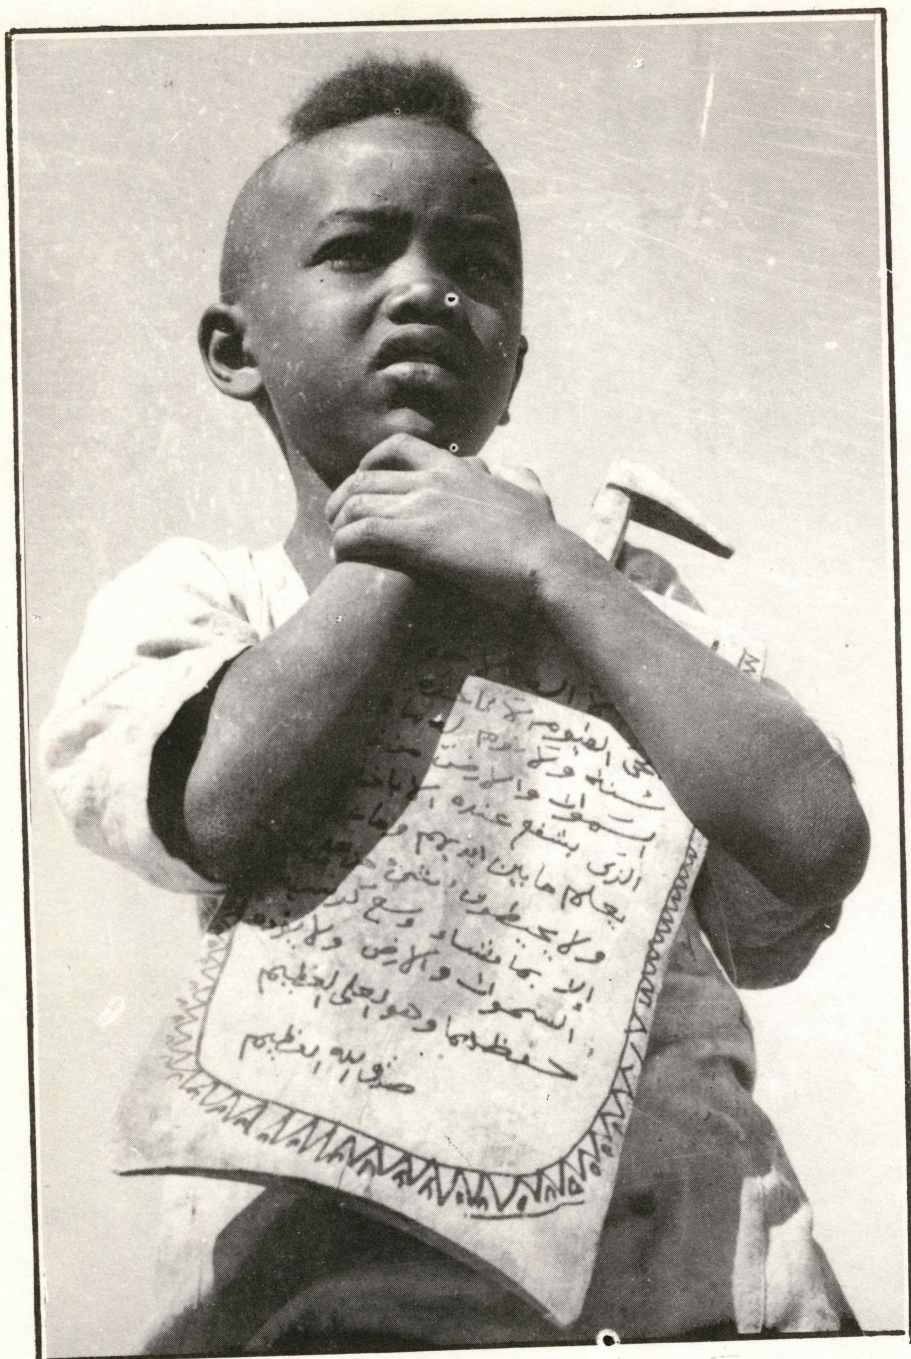 القيوم لا تاخذه
سنة ولا نوم له ما
السموات والارض من
الذى يشفع عنده الا
يعلم ما بين ايديهم وما
ولا يحيطون بشئ من
الا بما شاء وسع كرسيه
السموات والارض ولا يؤده
حفظهما وهو العلى العظيم
صدق الله العظيم